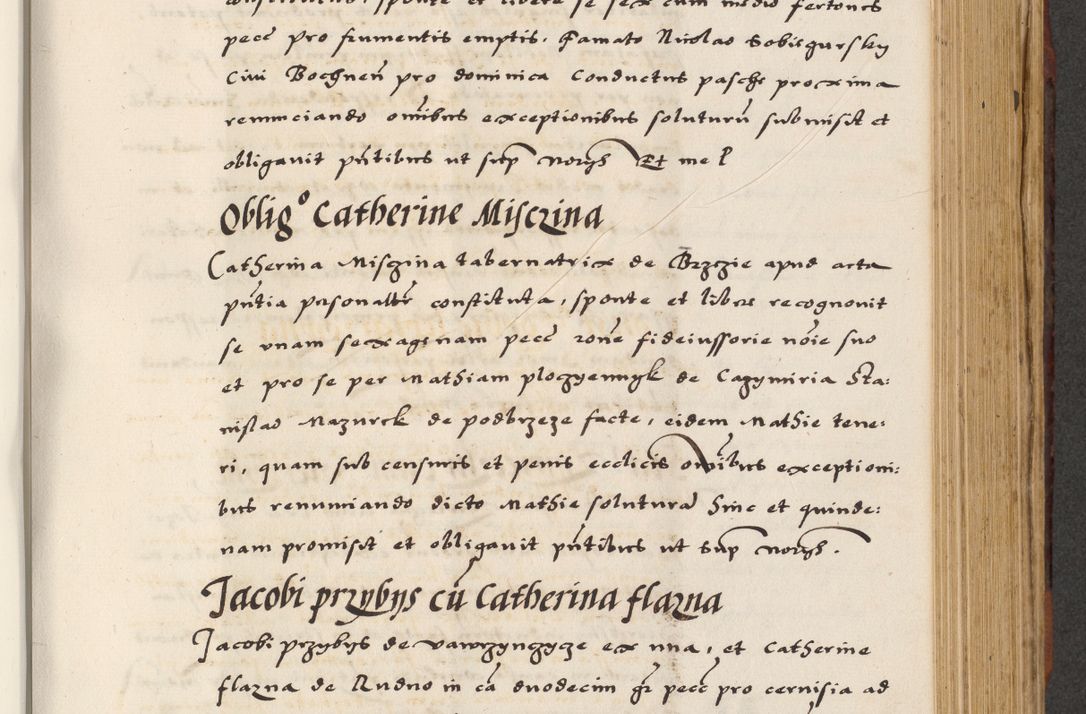 sponte et libere se sex cum medio fertones
pecc pro frumentis emptis, Famato Nicolao Sobiegursky
Civi Bochneñ pro dominica Conductus pasche proxima
renunciando om̃ibus exceptionibus soluturũ submisit et
obligavit pñtibus ut sup noty Et me P
Obligᵒ Catherine Misczina
Catherina Misczina tabernatrix de Brzezie apud acta
pñtia personalitr constituta, sponte et libere recognovit
se unam sexagenam pecc rõne fideiussorie nõie suo
et pro se per Mathiam ploczyennyk de Cazymiria Sta:
nislao Mazurek de podbrzeze facte, eidem Mathie tene:
ri, quam sub censuris et penis ecclicis om̃ibus exceptioni:
bus renunciando dicto Mathie soluturã hinc et quinde:
nam promisit et obligavit pñtibus ut sup
Jacobi przybys cũ Catherina flazna
Jacobi przybys de vawrzynczycze ex una, et Catherine
flazna de Rudno in cã duodecim gr pecc pro cervisia ad